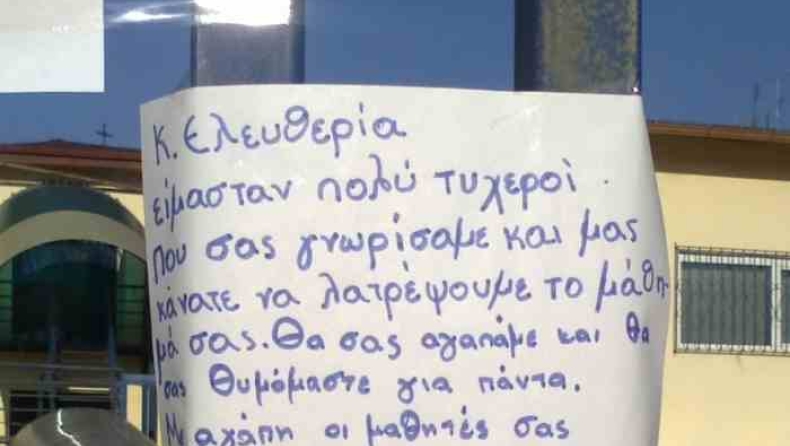 κ. Ελευθερία
είμασταν πολύ τυχεροί
που σας γνωρίσαμε και μας
κάνατε να λατρέψουμε το μάθη-
μά σας. Θα σας αγαπάμε και θα
σας θυμόμαστε για πάντα.
Με αγάπη οι μαθητές σας